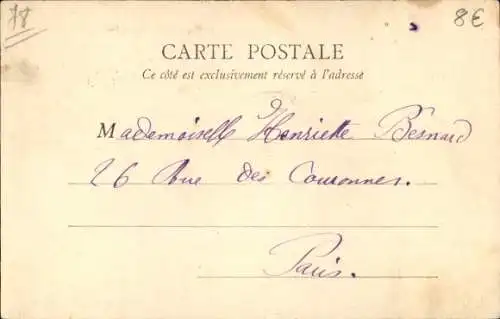 78
8€
CARTE POSTALE
Ce côté est exclusivement réservé à l'adresse
Mademoiselle Henriette Besnard
26 Rue des Couronnes.
Paris.